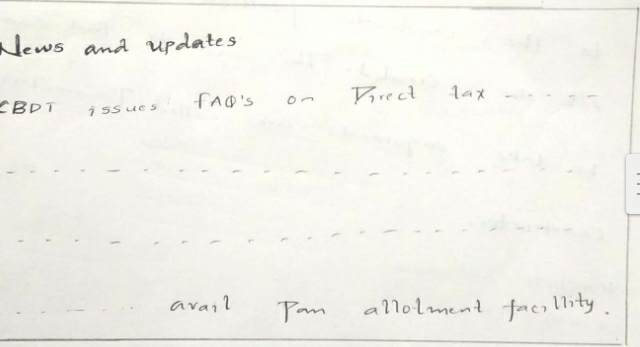 News and updates
CBDT issues FAQ's on Direct tax - - - - -
- - - - - - - - - - - - - - - - - - - - -
- - - - - - - - - - - - - - - - - - - - -
- - - - - - avail Pan allotment facillity.